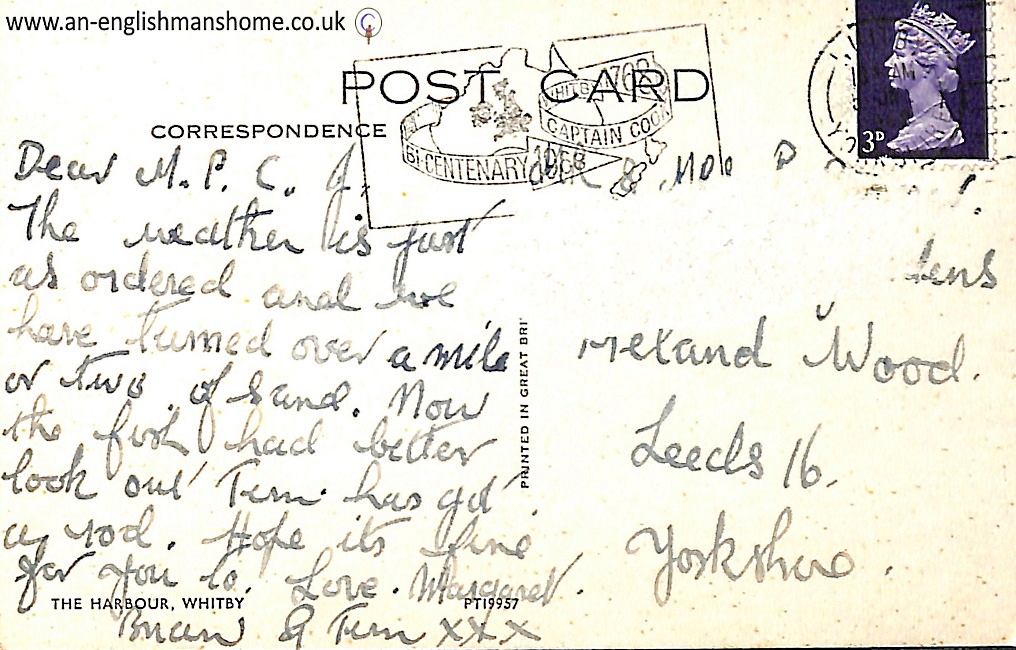 www.an-englishmanshome.co.uk
POST CARD
WHITBY 1768
CAPTAIN COOK
BI-CENTENARY 1968
AM
3D
CORRESPONDENCE
Dear M. P. C. J.
The weather is just
as ordered and we
have turned over a mile
or two of sand. Now
the fish had better
look out Tim has got
a rod. Hope its fine
for you to. Love. Margaret
Brian & Tim xxx
ens
Ireland Wood.
Leeds 16.
Yorkshire.
PRINTED IN GREAT BRI
THE HARBOUR, WHITBY
PT19957